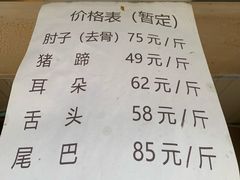 价格表（暂定）
肘子（去骨）75元/斤
猪蹄 49元/斤
耳朵 62元/斤
舌头 58元/斤
尾巴 85元/斤